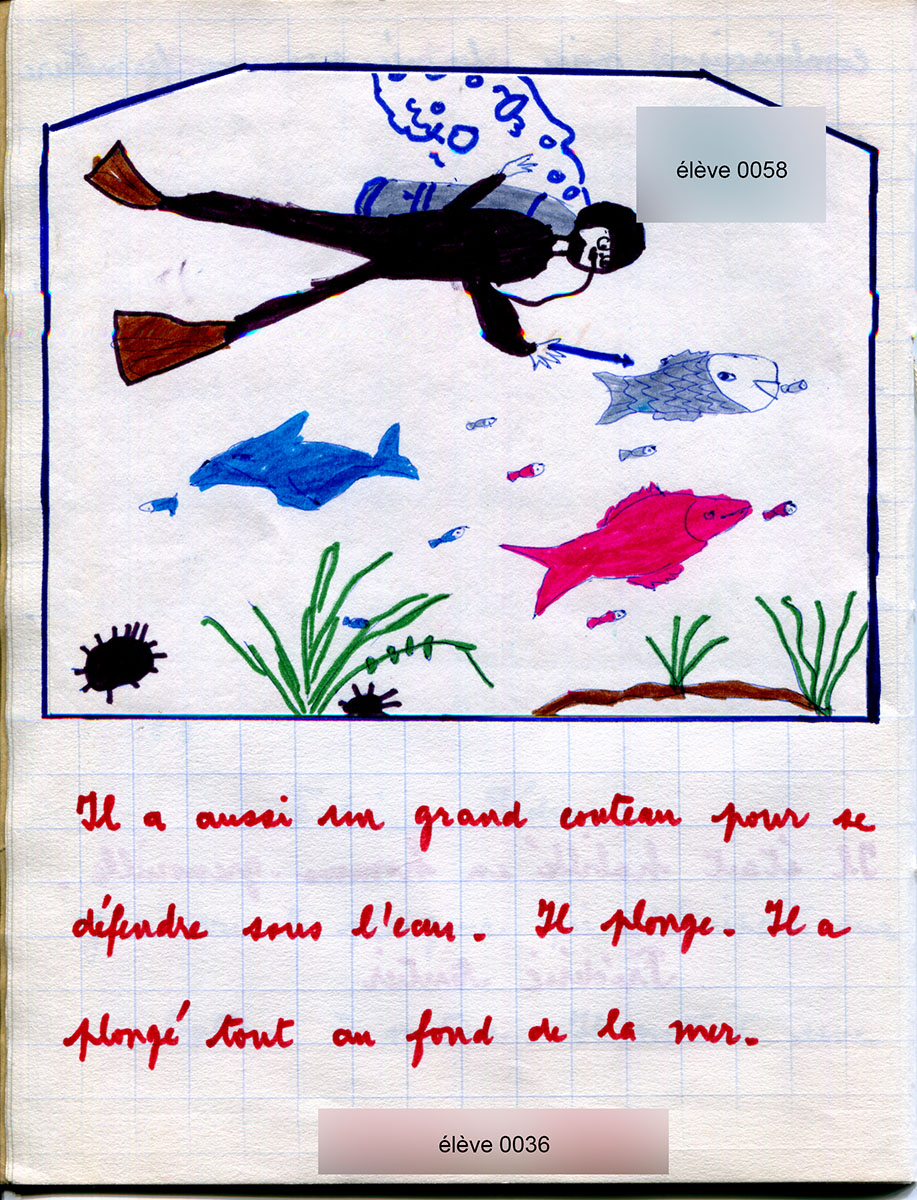 élève 0058
Il a aussi un grand couteau pour se
défendre sous l'eau. Il plonge. Il a
plongé tout au fond de la mer.
élève 0036